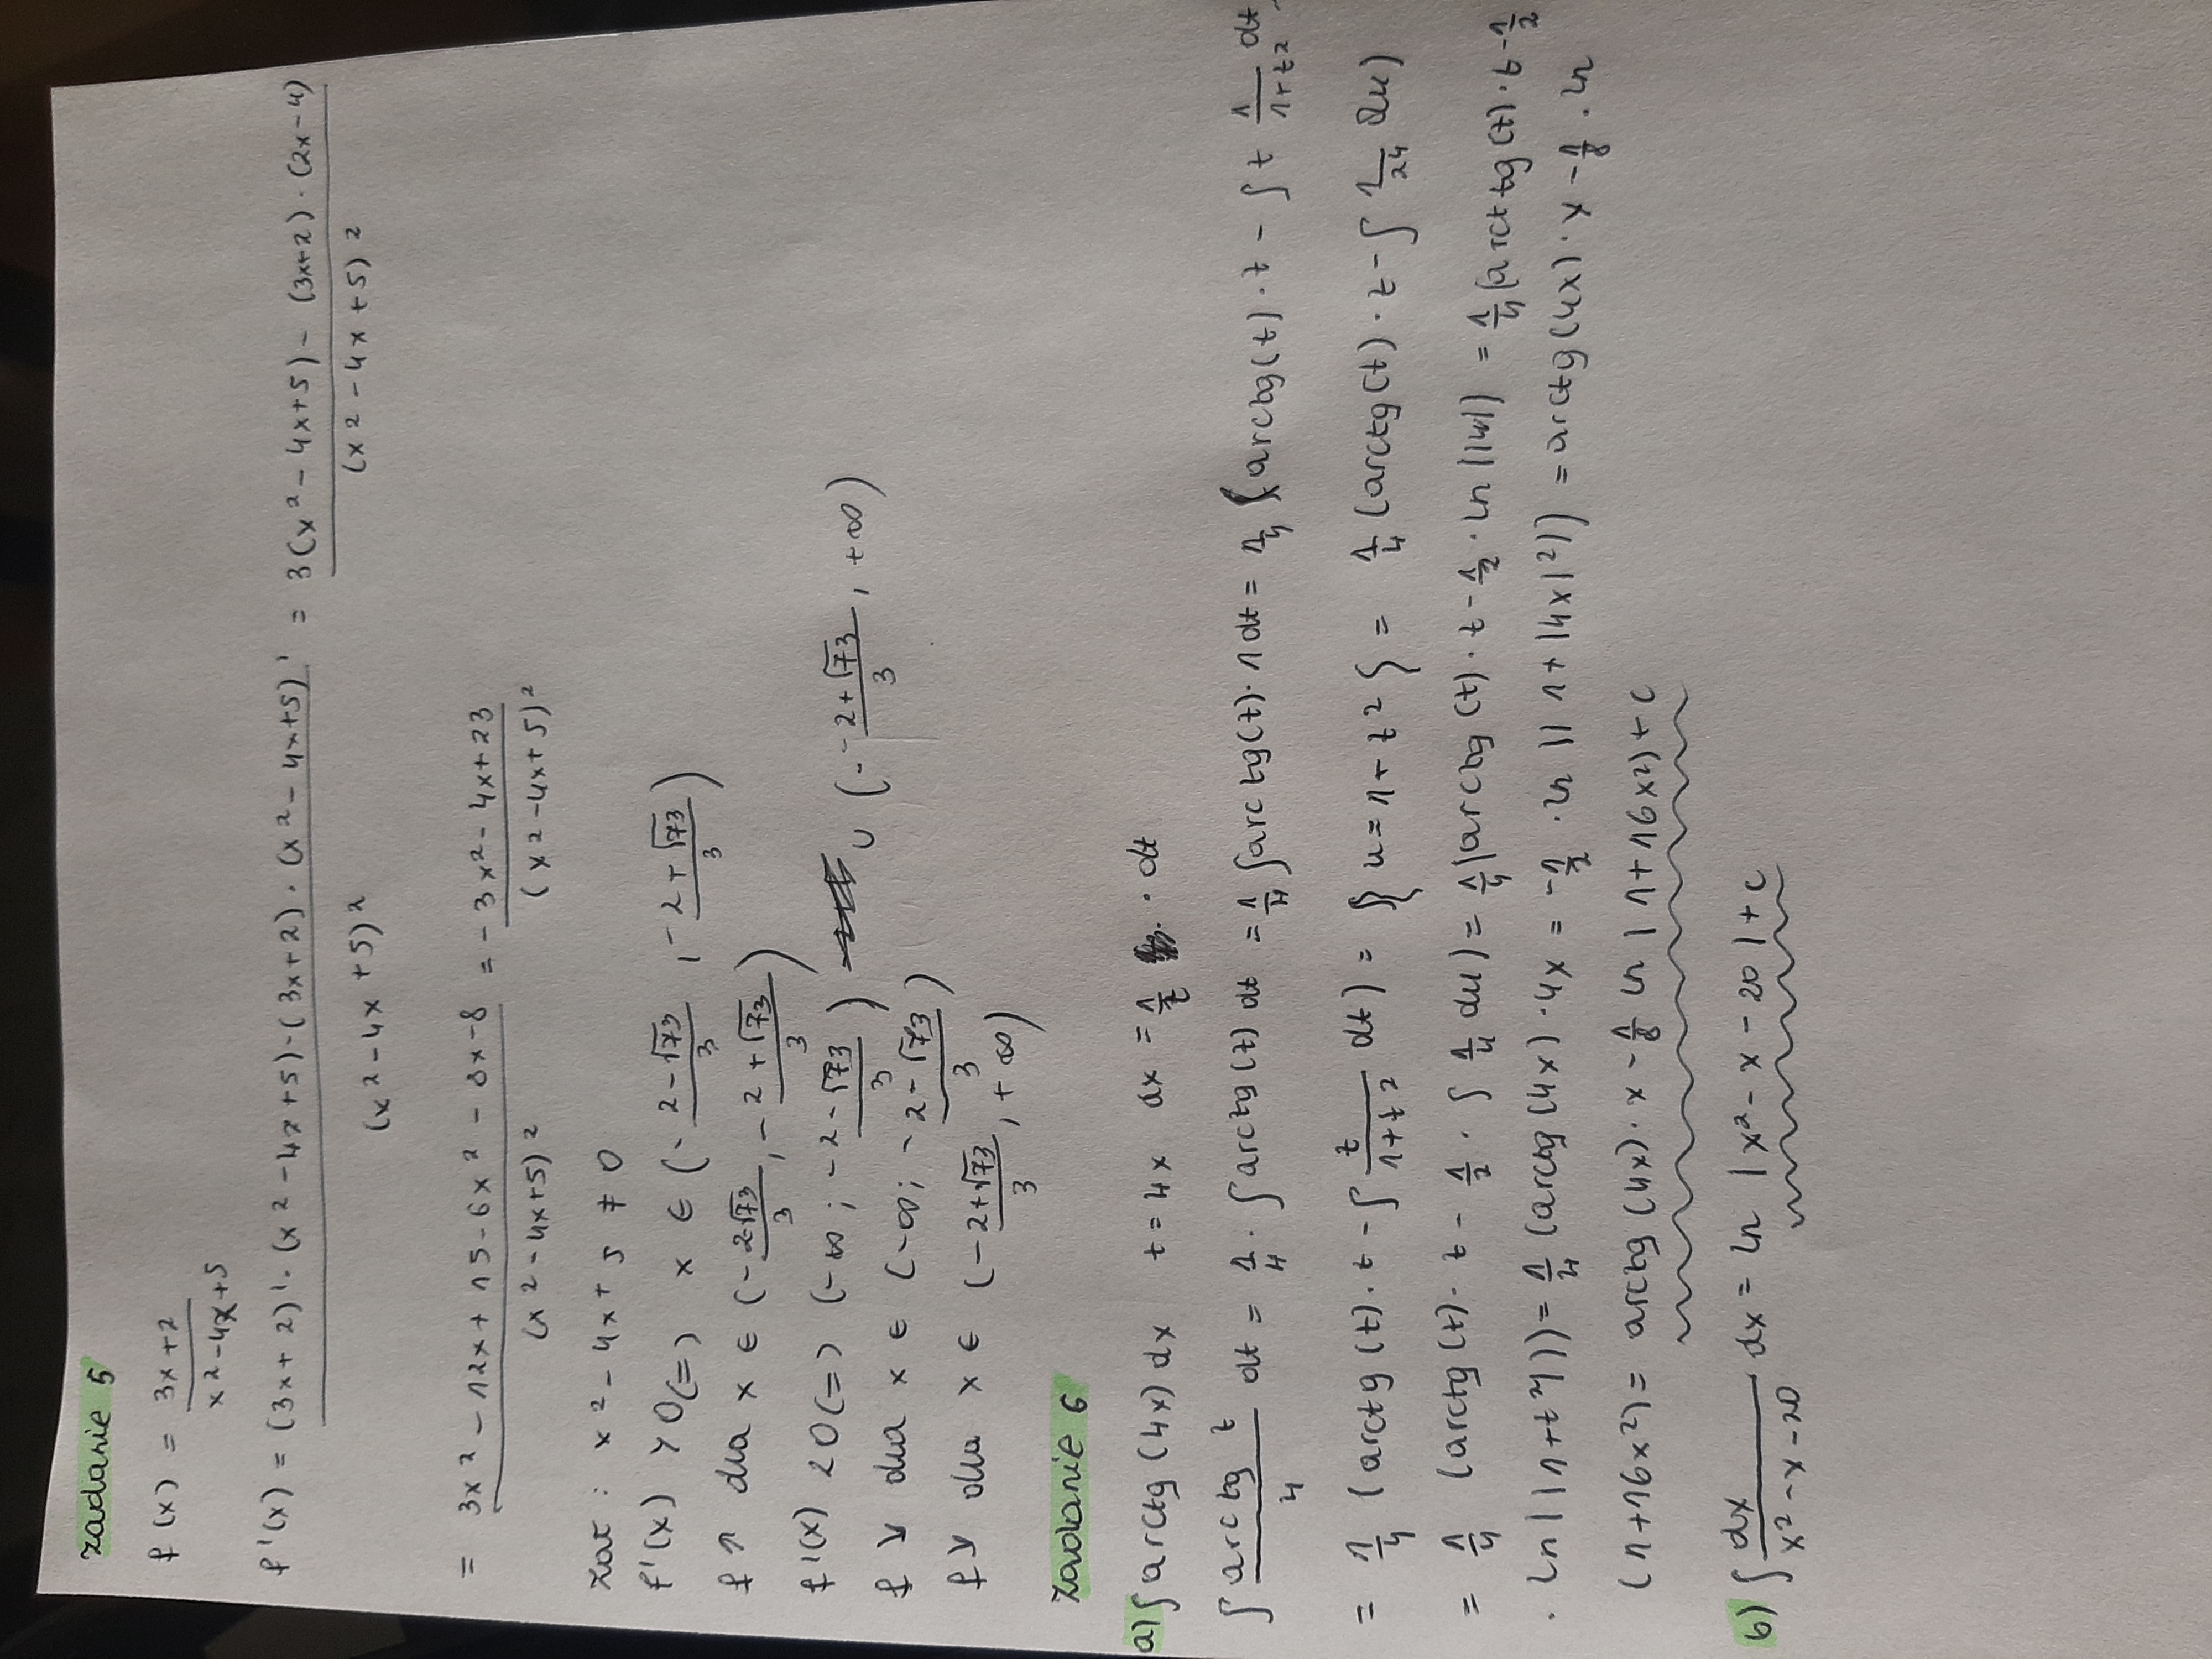 zadanie 5
f(x) = \frac{3x+2}{x^2-4x+5}
f'(x) = \frac{(3x+2)' \cdot (x^2-4x+5) - (3x+2) \cdot (x^2-4x+5)'}{(x^2-4x+5)^2} = \frac{3(x^2-4x+5) - (3x+2) \cdot (2x-4)}{(x^2-4x+5)^2}
= \frac{3x^2-12x+15-6x^2-8x-8}{(x^2-4x+5)^2} = -\frac{3x^2-4x+23}{(x^2-4x+5)^2}
zał: x^2-4x+5 ≠ 0
f'(x) > 0 (=) x ∈ (-\frac{2-\sqrt{73}}{3}, -\frac{2+\sqrt{73}}{3})
f ↗ dla x ∈ (-\frac{2-\sqrt{73}}{3}, -\frac{2+\sqrt{73}}{3})
f'(x) < 0 (=) (-∞; -\frac{2-\sqrt{73}}{3}) ∪ (-\frac{2+\sqrt{73}}{3}, +∞)
f ↘ dla x ∈ (-∞; -\frac{2-\sqrt{73}}{3})
f ↘ dla x ∈ (-\frac{2+\sqrt{73}}{3}, +∞)
Zadanie 6
a) ∫ arctg(4x) dx t = 4x dx = \frac{1}{t} \cdot dt
∫ \frac{arctg t}{4} dt = \frac{1}{4} \cdot ∫ arctg(t) dt = \frac{1}{4} ∫ arctg(t) \cdot 1 dt = \frac{1}{4} (arctg(t) \cdot t - ∫ t \frac{1}{1+t^2} dt
= \frac{1}{4} (arctg(t) \cdot t - ∫ \frac{t}{1+t^2} dt) = { u = 1+t^2 } = \frac{1}{4} (arctg(t) \cdot t - ∫ \frac{1}{24} du)
= \frac{1}{4} (arctg(t) \cdot t - \frac{1}{2} \cdot ∫ \frac{1}{u} du) = \frac{1}{4} (arctg(t) \cdot t - \frac{1}{2} \cdot ln|1u|) = \frac{1}{4} (arctg(t) \cdot t - \frac{1}{2}
\cdot ln(|1+t^2|)) = \frac{1}{4} (arctg(4x) \cdot 4x = -\frac{1}{2} \cdot ln || 1+|4x|^2)) = arctg(4x) \cdot x - \frac{1}{8} \cdot ln
(1+16x^2) = arctg(4x) \cdot x - \frac{1}{8} ln |1+16x^2) + c
b) ∫ \frac{dx}{x^2-x-20} dx = ln |x^2-x-20| + c